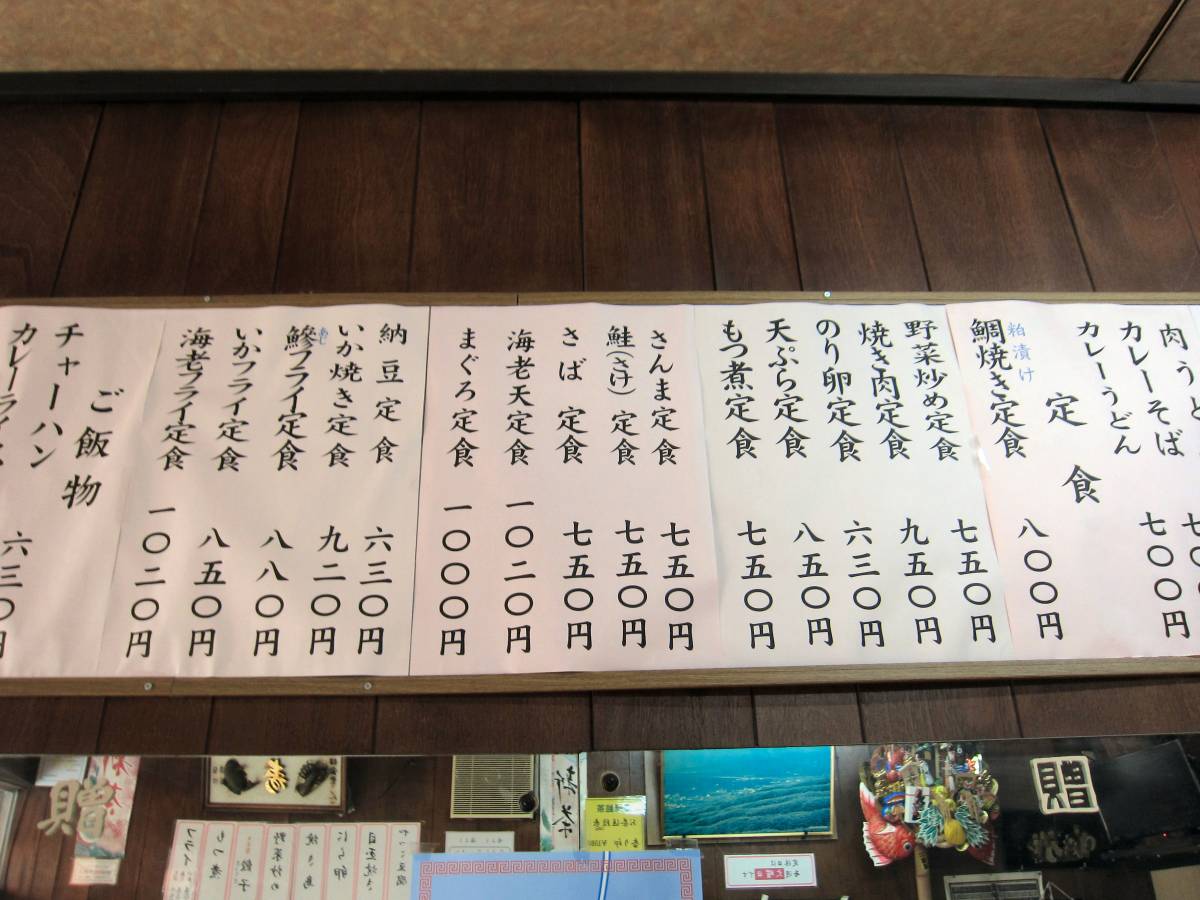 肉うど
カレーそば 七〇〇円
カレーうどん
定食
粕漬け
鯛焼き定食 八〇〇円
野菜炒め定食 七五〇円
焼き肉定食 九五〇円
のり卵定食 六三〇円
天ぷら定食 八五〇円
もつ煮定食 七五〇円
さんま定食 七五〇円
鮭(さけ)定食 七五〇円
さば定食 七五〇円
海老天定食 一〇二〇円
まぐろ定食 一〇〇〇円
納豆定食 六三〇円
いか焼き定食 九二〇円
鯵フライ定食 八八〇円
いかフライ定食 八五〇円
海老フライ定食 一〇二〇円
ご飯物
チャーハン
カレーライス 六三〇円
贈
寿
新茶
目玉焼き
にら卵
焼き鳥
野菜炒め
餃子
もつ煮
フライ
贈